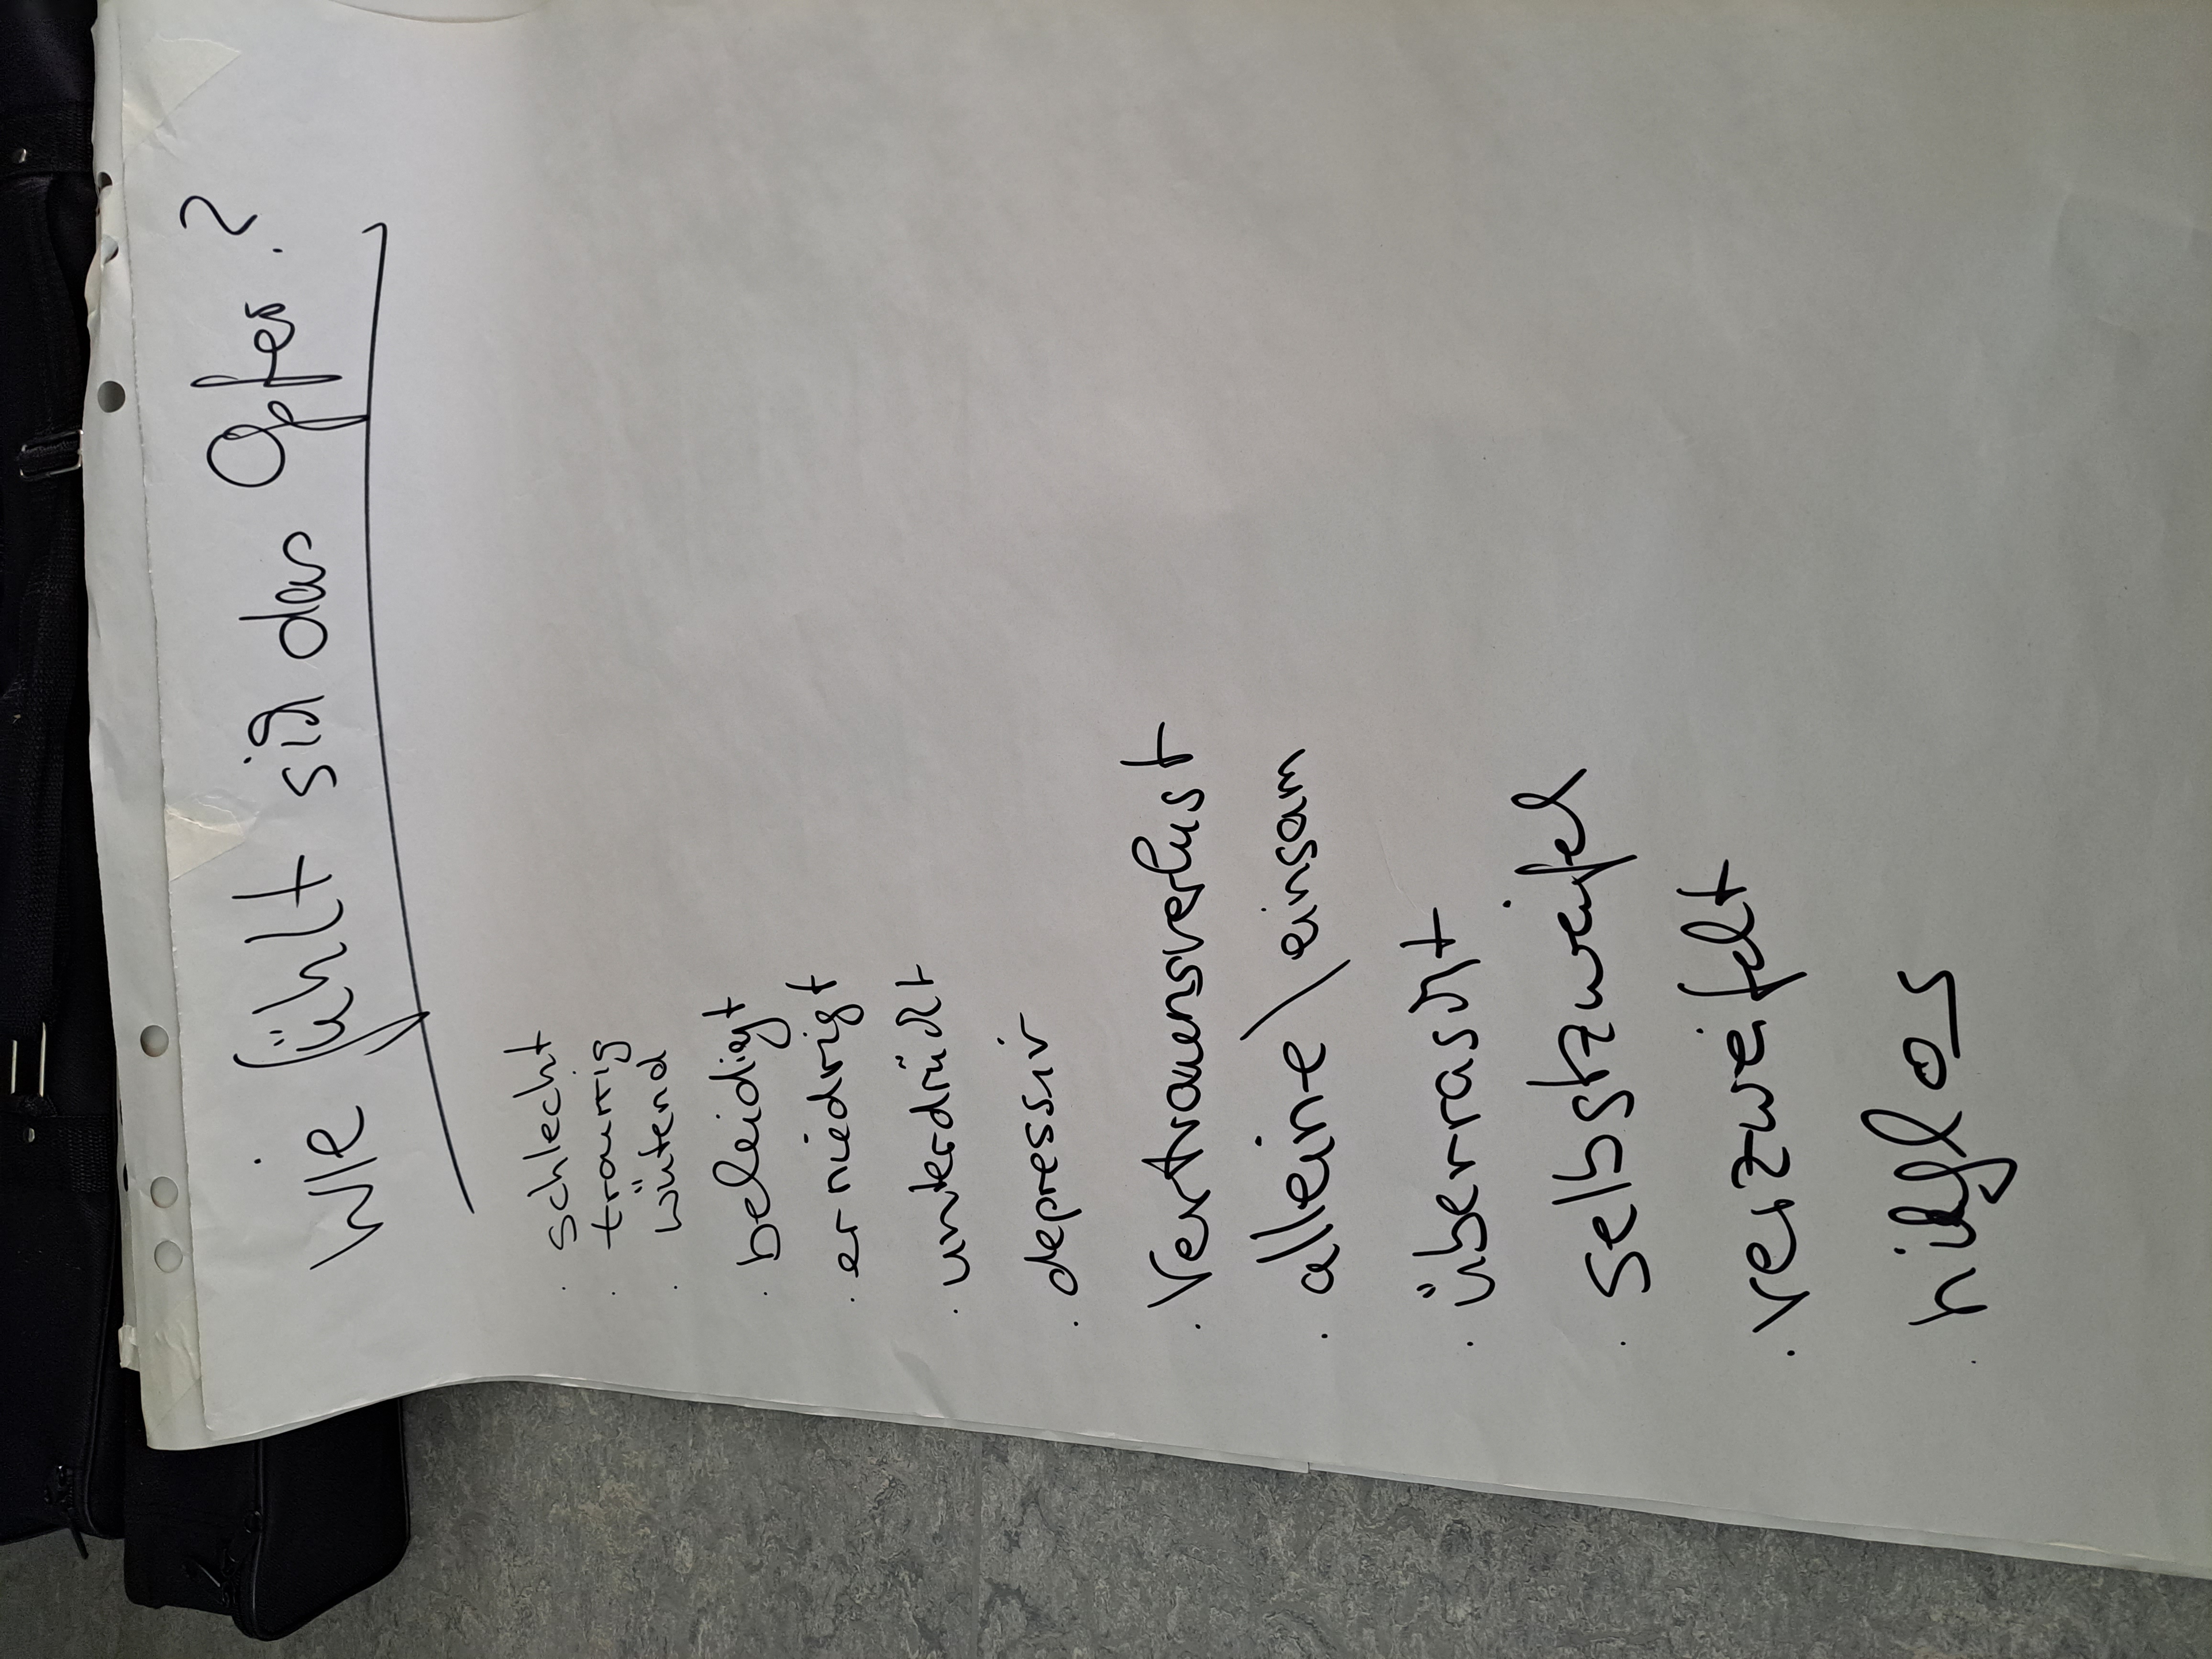 Wie fühlt sich das Opfer?
· schlecht
· traurig
· wütend
· beleidigt
· erniedrigt
· unterdrückt
· depressiv
· Vertrauensverlust
· alleine / einsam
· überrascht
· Selbstzweifel
· verzweifelt
· hilflos